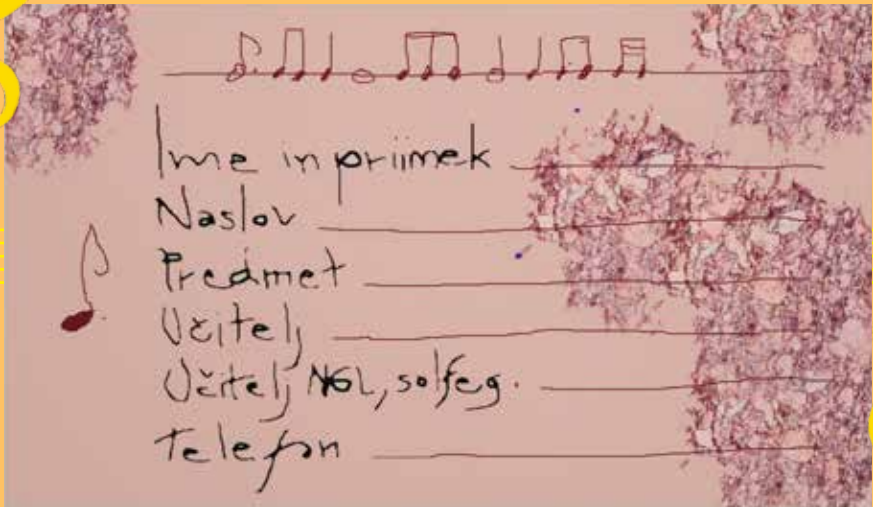 Ime in priimek
Naslov
Predmet
Učitelj
Učitelj NGL, solfeg.
Telefon